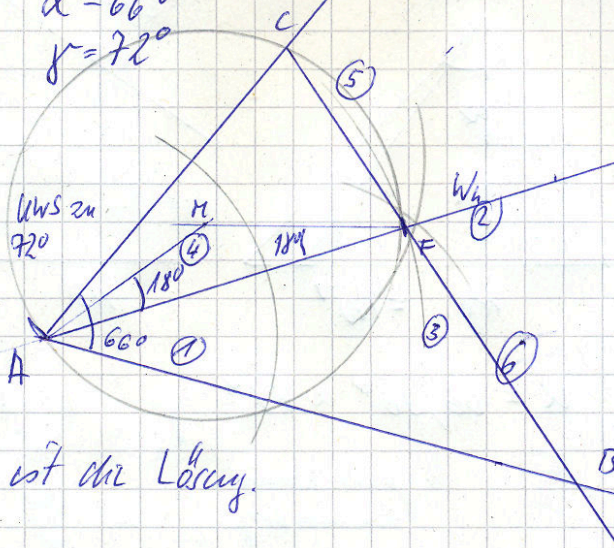 α = 66°
γ = 72°
C
5
UWS zu
72°
M
4
18°
18°
Wα
2
F
66°
1
3
6
A
B
ist die Lösung.